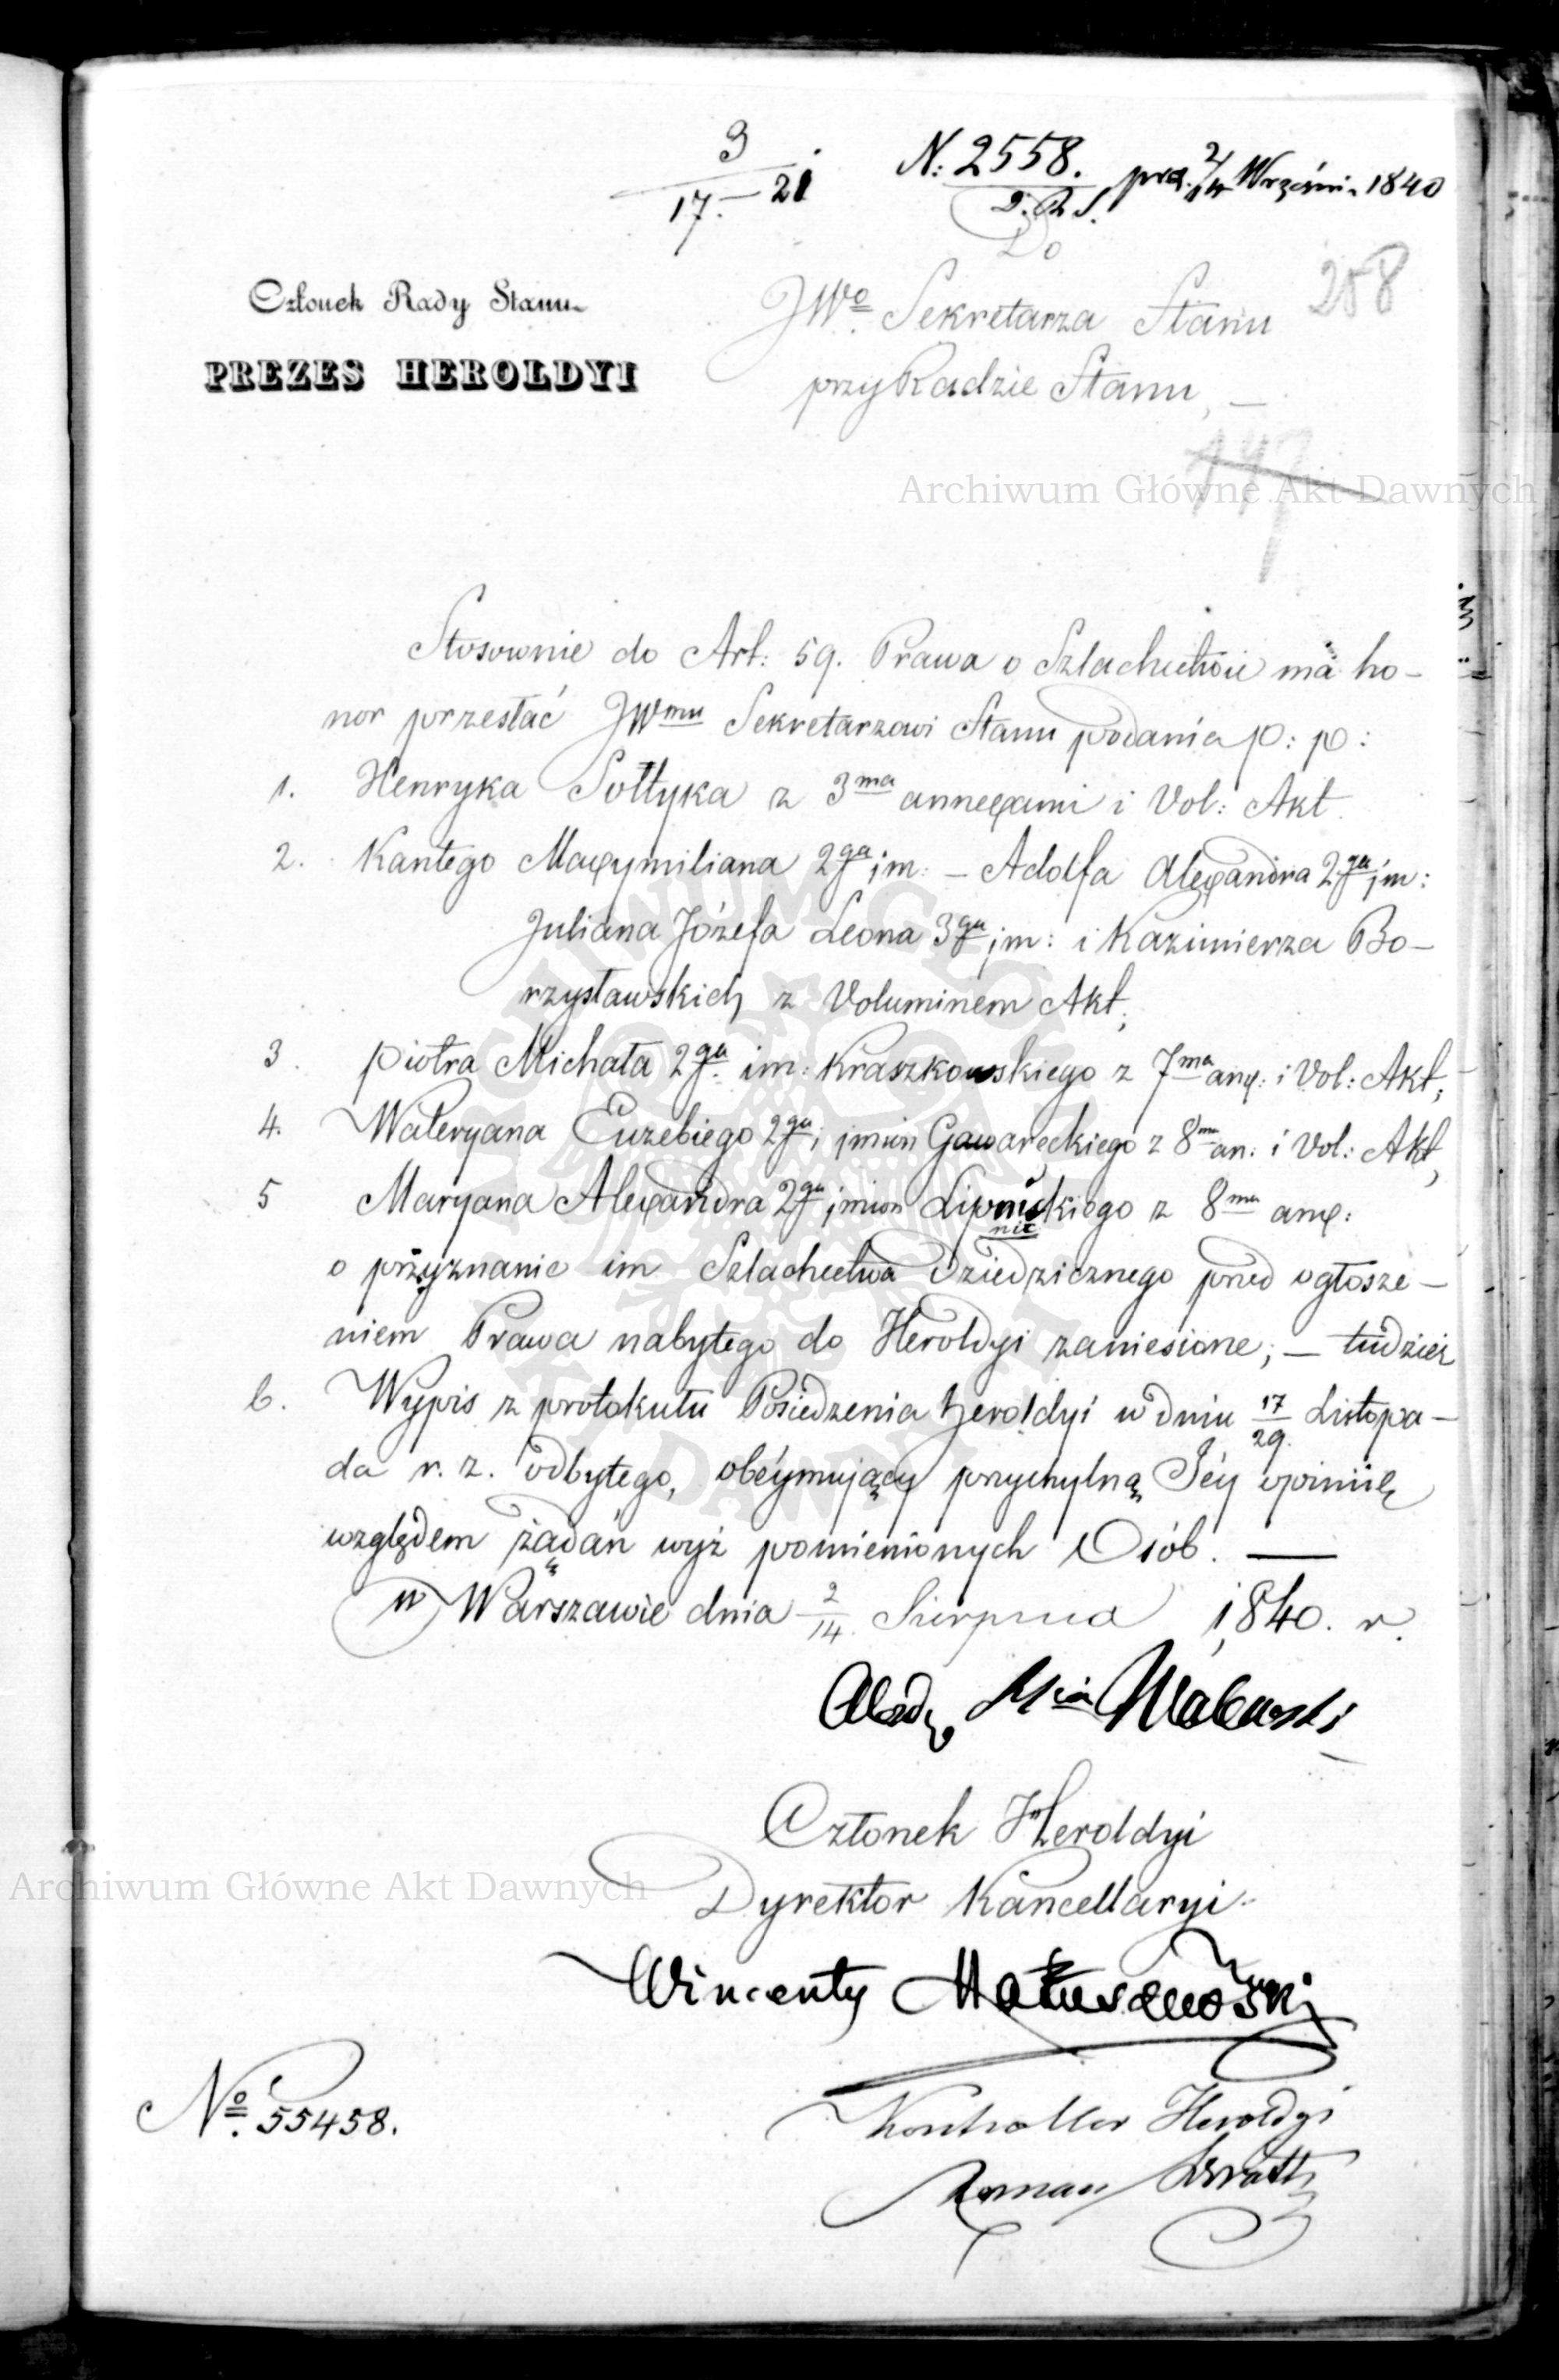 3
17. — 21
N: 2558.
D. R. S.
prez. 2/14 Września 1840
Do
JWo Sekretarza Stanu
przy Radzie Stanu, —
258
Członek Rady Stanu
PREZES HEROLDYI
147
Archiwum Główne Akt Dawnych
Stosownie do Art: 59. Prawa o Szlachectwie ma ho-
nor przesłać JWmu Sekretarzowi Stanu podania p: p:
1. Henryka Sołtyka z 3ma annexami i Vol: Akt.
2. Kantego Maxymiliana 2ga im: — Adolfa Alexandra 2ga im:
Juliana Józefa Leona 3ga im: i Kazimierza Bo-
rzysławskich z Voluminem Akt;
3. Piotra Michała 2ga im: Kraszkowskiego z 7ma anx: i Vol: Akt;
4. Waleryana Euzebiego 2ga imion Gawareckiego z 8ma an: i Vol: Akt,
5 Maryana Alexandra 2ga imion Lipnickiego z 8ma anx:
nic
o przyznanie im Szlachectwa dziedzicznego przed ogłosze-
niem Prawa nabytego do Heroldyi zaniesione; — tudzież
6. Wypis z protokułu Posiedzenia Heroldyi w dniu 17/29 Listopa-
da r. z. odbytego, obeymujący przychylną Jéy opinię
względem żądań wyż pomienionych Osób. —
w Warszawie dnia 2/14 Sierpnia 1840. r.
Członek Heroldyi
Dyrektor Kancellaryi
Archiwum Główne Akt Dawnych
Wincenty Matuszewski
No. 55458.
Kontroller Heroldyi
Roman